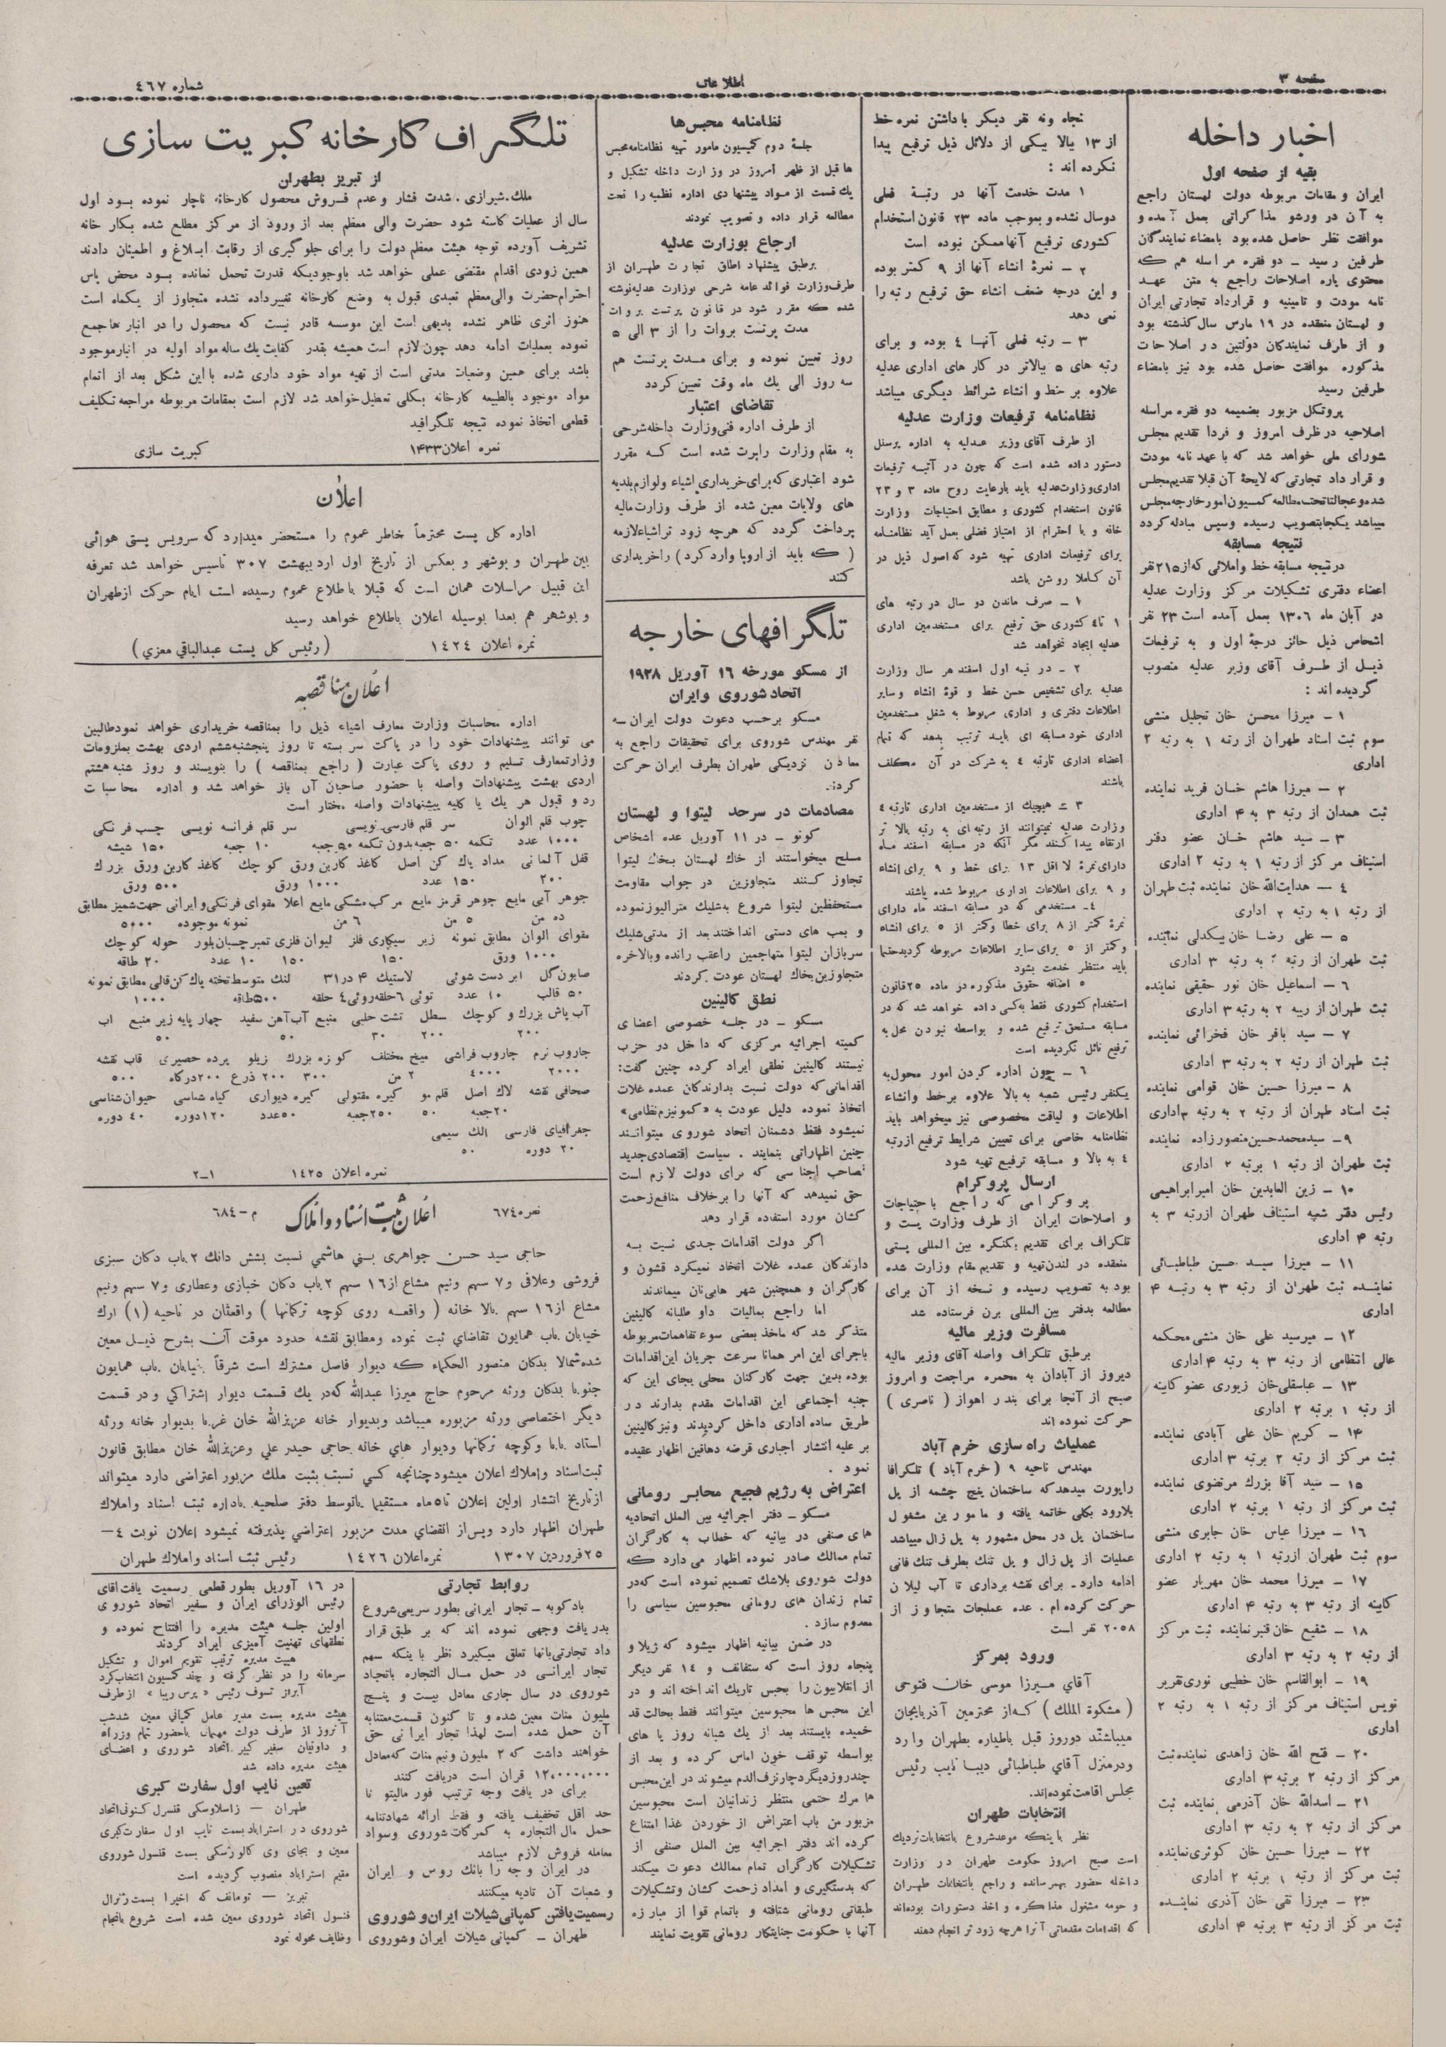 صفحه ۳
اطلاعات
شماره ٤٦٧
اخبار داخله
بقیه از صفحه اول
ایران و مقامات مربوطه دولت لهستان راجع
به آن در ورشو مذاکراتی بعمل آمده و
موافقت نظر حاصل شده بود بامضاء نمایندگان
طرفین رسید - دو فقره مراسله هم که
محتوی پاره اصلاحات راجع به متن عهد
نامه مودت و تامینیه و قرارداد تجارتی ایران
و لهستان منعقده در ۱۹ مارس سال گذشته بود
و از طرف نمایندگان دولتین در اصلاحات
مذکوره موافقت حاصل شده بود نیز بامضاء
طرفین رسید
پروتکل مزبور بضمیمه دو فقره مراسله
اصلاحیه در ظرف امروز و فردا تقدیم مجلس
شورای ملی خواهد شد که با عهد نامه مودت
و قرار داد تجارتی که لایحهٔ آن قبلا تقدیم مجلس
شده و عجالتا تحت مطالعه کمسیون امور خارجه مجلس
میباشد یکجا بتصویب رسیده و سپس مبادله گردد
نتیجه مسابقه
در نتیجه مسابقه خط و املائی که از ۲۱۵ نفر
اعضاء دفتری تشکیلات مرکز وزارت عدلیه
در آبان ماه ۱۳۰۶ بعمل آمده است ۲۳ نفر
اشخاص ذیل حائز درجهٔ اول و به ترفیعات
ذیل از طرف آقای وزیر عدلیه منصوب
گردیده اند :
۱ - میرزا محسن خان تجلیل منشی
سوم ثبت اسناد طهران از رتبه ۱ به رتبه ۲
اداری
۲ - میرزا هاشم خان فرید نماینده
ثبت همدان از رتبه ۳ به ۴ اداری
۳ - سید هاشم خان عضو دفتر
استیناف مرکز از رتبه ۱ به رتبه ۲ اداری
۴ - هدایت‌الله خان نماینده ثبت طهران
از رتبه ۱ به رتبه ۲ اداری
۵ - علی رضا خان بیکدلی نماینده
ثبت طهران از رتبه ۲ به رتبه ۳ اداری
۶ - اسماعیل خان نور حقیقی نماینده
ثبت طهران از رتبه ۲ به رتبه ۳ اداری
۷ - سید باقر خان فخرائی نماینده
ثبت طهران از رتبه ۲ به رتبه ۳ اداری
۸ - میرزا حسین خان قوامی نماینده
ثبت اسناد طهران از رتبه ۲ به رتبه ۳ اداری
۹ - سید محمد حسین منصور زاده نماینده
ثبت طهران از رتبه ۱ برتبه ۲ اداری
۱۰ - زین العابدین خان امیر ابراهیمی
رئیس دفتر شعبه استیناف طهران از رتبه ۳ به
رتبه ۴ اداری
۱۱ - میرزا سید حسین طباطبائی
نماینده ثبت طهران از رتبه ۳ به رتبه ۴
اداری
۱۲ - میرسید علی خان منشی محکمه
عالی انتظامی از رتبه ۳ به رتبه ۴ اداری
۱۳ - عباسقلی خان زیوری عضو کابینه
از رتبه ۱ برتبه ۲ اداری
۱۴ - کریم خان علی آبادی نماینده
ثبت مرکز از رتبه ۲ برتبه ۳ اداری
۱۵ - سید آقا بزرك مرتضوی نماینده
ثبت مرکز از رتبه ۱ برتبه ۲ اداری
۱۶ - میرزا عباس خان جابری منشی
سوم ثبت طهران از رتبه ۱ به رتبه ۲ اداری
۱۷ - میرزا محمد خان مهریار عضو
کابینه از رتبه ۳ به رتبه ۴ اداری
۱۸ - شفیع خان قنبر نماینده ثبت مرکز
از رتبه ۲ به رتبه ۳ اداری
۱۹ - ابوالقاسم خان خطیبی نوری تقریر
نویس استیناف مرکز از رتبه ۱ به رتبه ۲
اداری
۲۰ - فتح الله خان زاهدی نماینده ثبت
مرکز از رتبه ۲ برتبه ۳ اداری
۲۱ - اسدالله خان آذرمی نماینده ثبت
مرکز از رتبه ۲ به رتبه ۳ اداری
۲۲ - میرزا حسین خان کوثری نماینده
ثبت مرکز از رتبه ۱ برتبه ۲ اداری
۲۳ - میرزا تقی خان آذری نماینده
ثبت مرکز از رتبه ۳ برتبه ۴ اداری
نجاه و نه نفر دیگر با داشتن نمره خط
از ۱۳ ببالا بیکی از دلائل ذیل ترفیع پیدا
نکرده اند :
۱ مدت خدمت آنها در رتبهٔ فعلی
دو سال نشده و بموجب ماده ۲۳ قانون استخدام
کشوری ترفیع آنها ممکن نبوده است
۲ - نمرهٔ انشاء آنها از ۹ کمتر بوده
و این درجه ضعف انشاء حق ترفیع رتبه را
نمی دهد
۳ - رتبه فعلی آنها ٤ بوده و برای
رتبه های ۵ ببالاتر در کار های اداری عدلیه
علاوه بر خط و انشاء شرائط دیگری میباشد
نظامنامه ترفیعات وزارت عدلیه
از طرف آقای وزیر عدلیه به اداره پرسنل
دستور داده شده است که چون در آتیه ترفیعات
اداری وزارت عدلیه باید بارعایت روح ماده ۳ و ۲۳
قانون استخدام کشوری و مطابق احتیاجات وزارت
خانه و با احترام از امتیاز فضلی بعمل آید نظامنامه
برای ترفیعات اداری تهیه شود که اصول ذیل در
آن کاملا روشن باشد
۱ - صرف ماندن دو سال در رتبه های
۱ تا ٤ کشوری حق ترفیع برای مستخدمین اداری
عدلیه ایجاد نخواهد شد
۲ - در نیمه اول اسفند هر سال وزارت
عدلیه برای تشخیص حسن خط و قوهٔ انشاء و سایر
اطلاعات دفتری و اداری مربوط به شغل مستخدمین
اداری خود مسابقه ای باید ترتیب بدهد که تمام
اعضاء اداری تا رتبه ٤ به شرکت در آن مکلف
باشند
۳ - هیچیك از مستخدمین اداری تا رتبه ٤
وزارت عدلیه نمیتوانند از رتبه ای به رتبه بالا تر
ارتقاء پیدا کنند مگر آنکه در مسابقه اسفند ماه
دارای نمرهٔ لااقل ۱۳ برای خط و ۹ برای انشاء
و ۹ برای اطلاعات اداری مربوط شده باشند
٤ - مستخدمی که در مسابقه اسفند ماه دارای
نمرهٔ کمتر از ۸ برای خط یا کمتر از ۵ برای انشاء
و کمتر از ۵ برای سایر اطلاعات مربوطه گردید حتما
باید منتظر خدمت بشود
۵ اضافه حقوق مذکوره در ماده ۲۵ قانون
استخدام کشوری فقط بکسی داده خواهد شد که در
مسابقه مستحق ترفیع شده و بواسطه نبودن محل به
ترفیع نائل نگردیده است
۶ - چون اداره کردن امور محول به
یکنفر رئیس شعبه به بالا علاوه بر خط و انشاء
اطلاعات و لیاقت مخصوصی نیز میخواهد باید
نظامنامه خاصی برای تعیین شرایط ترفیع از رتبه
٤ به بالا و مسابقه ترفیع تهیه شود
ارسال پروگرام
پروگرامی که راجع باحتیاجات
و اصلاحات ایران از طرف وزارت پست و
تلگراف برای تقدیم بکنگره بین المللی پستی
منعقده در لندن تهیه و تقدیم مقام وزارت شده
بود به تصویب رسیده و نسخه از آن برای
مطالعه بدفتر بین المللی برن فرستاده شد
مسافرت وزیر مالیه
برطبق تلگراف واصله آقای وزیر مالیه
دیروز از آبادان به محمره مراجعت و امروز
صبح از آنجا برای بندر اهواز ( ناصری )
حرکت نموده اند
عملیات راه سازی خرم آباد
مهندس ناحیه ۹ ( خرم آباد ) تلگرافا
راپورت میدهد که ساختمان پنج چشمه از پل
بلارود بکلی خاتمه یافته و مامورین مشغول
ساختمان پل در محل مشهور به پل زال میباشد
عملیات از پل زال و پل تنك بطرف تنك فانی
ادامه دارد - برای نقشه برداری تا آب لیلان
حرکت کرده ام . عده عملجات متجاوز از
۲۰۵۸ نفر است
ورود بمرکز
آقای میرزا موسی خان فتوحی
( مشکوة الملك ) که از محترمین آذربایجان
میباشند دو روز قبل باطیاره بطهران وارد
و در منزل آقای طباطبائی دیبا نایب رئیس
مجلس اقامت نموده‌اند.
انتخابات طهران
نظر باینکه موعد شروع بانتخابات نزدیك
است صبح امروز حکومت طهران در وزارت
داخله حضور بهمرسانده و راجع بانتخابات طهران
و حومه مشغول مذاکره و اخذ دستورات بوده‌اند
که اقدامات مقدماتی آنرا هرچه زود تر انجام دهند
نظامنامه محبس‌ها
جلسهٔ دوم کمیسیون مامور تهیه نظامنامه محبس
ها قبل از ظهر امروز در وزارت داخله تشکیل و
یك قسمت از مواد پیشنهادی اداره نظمیه را تحت
مطالعه قرار داده و تصویب نمودند
ارجاع بوزارت عدلیه
برطبق پیشنهاد اطاق تجارت طهران از
طرف وزارت فوائد عامه شرحی بوزارت عدلیه نوشته
شده که مقرر شود در قانون پرتست بروات
مدت پرتست بروات را از ۳ الی ۵
روز تعیین نموده و برای مدت پرتست هم
سه روز الی یك ماه وقت تعین گردد
تقاضای اعتبار
از طرف اداره فنی وزارت داخله شرحی
به مقام وزارت راپرت شده است که مقرر
شود اعتباری که برای خریداری اشیاء و لوازم بلدیه
های ولایات معین شده از طرف وزارت مالیه
پرداخت گردد که هرچه زود تر اشیاء لازمه
( که باید از اروپا وارد کرد ) را خریداری
کنند
تلگرافهای خارجه
از مسکو مورخه ۱۶ آوریل ۱۹۲۸
اتحاد شوروی و ایران
مسکو برحسب دعوت دولت ایران سه
نفر مهندس شوروی برای تحقیقات راجع به
معادن نزدیکی طهران بطرف ایران حرکت
کردند
مصادمات در سرحد لیتوا و لهستان
کونو - در ۱۱ آوریل عده اشخاص
مسلح میخواستند از خاك لهستان بخاك لیتوا
تجاوز کنند متجاوزین در جواب مقاومت
مستحفظین لیتوا شروع به شلیك مترالیوز نموده
و بمب های دستی انداختند بعد از مدتی شلیك
سربازان لیتوا متهاجمین را عقب رانده و بالاخره
متجاوزین بخاك لهستان عودت کردند
نطق کالینین
مسکو - در جلسه خصوصی اعضای
کمیته اجرائیه مرکزی که داخل در حزب
نیستند کالینین نطقی ایراد کرده چنین گفت:
اقداماتی که دولت نسبت بدارندگان عمده غلات
اتخاذ نموده دلیل عودت به «کمونیزم نظامی»
نمیشود فقط دشمنان اتحاد شوروی میتوانند
چنین اظهاراتی بنمایند . سیاست اقتصادی جدید
بصاحب اجناسی که برای دولت لازم است
حق نمیدهد که آنها را برخلاف منافع زحمت
کشان مورد استفاده قرار دهد
اگر دولت اقدامات جدی نسبت به
دارندگان عمده غلات اتخاذ نمیکرد قشون و
کارگران و همچنین شهر ها بی‌نان میماندند
اما راجع بمالیات داوطلبانه کالینین
متذکر شد که ماخذ بعضی سوء تفاهمات مربوطه
باجرای این امر همانا سرعت جریان این اقدامات
بوده بدین جهت کارکنان محلی بجای این که
جنبه اجتماعی این اقدامات مقدم بدارند در
طریق ساده اداری داخل گردیدند و نیز کالینین
بر علیه انتشار اجباری قرضه دهاقین اظهار عقیده
نمود .
اعتراض به رژیم فجیع محابس رومانی
مسکو - دفتر اجرائیه بین الملل اتحادیه
های صنفی در بیانیه که خطاب به کارگران
تمام ممالك صادر نموده اظهار می دارد که
دولت شوروی بلاشك تصمیم نموده است که در
تمام زندان های رومانی محبوسین سیاسی را
معدوم سازد .
در ضمن بیانیه اظهار میشود که ژیلا و
پنجاه روز است که ستفانف و ۱۴ نفر دیگر
از انقلابیون را بحبس تاریك انداخته اند و در
این محبس ها محبوسین میتوانند فقط بحالت قد
خمیده بایستند بعد از یك شبانه روز پا های
بواسطه توقف خون اماس کرده و بعد از
چند روز دیگر دچار نزف الدم میشوند در این محبس
ها مرك حتمی منتظر زندانیان است محبوسین
مزبور من باب اعتراض از خوردن غذا امتناع
کرده اند دفتر اجرائیه بین الملل صنفی از
تشکیلات کارگران تمام ممالك دعوت میکند
که بدستگیری و امداد زحمت کشان و تشکیلات
طبقاتی رومانی شتافته و باتمام قوا از مبارزه
آنها با حکومت جنایتکار رومانی تقویت نمایند
تلگراف کارخانه کبریت سازی
از تبریز بطهران
ملك . شیرازی . شدت فشار و عدم فروش محصول کارخانه ناچار نموده بود اول
سال از عملیات کاسته شود حضرت والی معظم بعد از ورود از مرکز مطلع شده بکار خانه
تشریف آورده توجه هیئت معظم دولت را برای جلوگیری از رقابت ابلاغ و اطمینان دادند
همین زودی اقدام مقتضی عملی خواهد شد باوجودیکه قدرت تحمل نمانده بود محض پاس
احترام حضرت والی معظم تعبدی قبول به وضع کارخانه تغییر داده نشده متجاوز از یکماه است
هنوز اثری ظاهر نشده بدیهی است این موسسه قادر نیست که محصول را در انبار ها جمع
نموده بعملیات ادامه دهد چون لازم است همیشه بقدر کفایت یك ساله مواد اولیه در انبار موجود
باشد برای همین وضعیات مدتی است از تهیه مواد خود داری شده با این شکل بعد از اتمام
مواد موجود بالطبیعه کارخانه بکلی تعطیل خواهد شد لازم است بمقامات مربوطه مراجعه تکلیف
قطعی اتخاذ نموده نتیجه تلگرافید
نمره اعلان ۱۴۳۳ کبریت سازی
اعلان
اداره کل پست محترماً خاطر عموم را مستحضر میدارد که سرویس پستی هوائی
بین طهران و بوشهر و بعکس از تاریخ اول اردیبهشت ۳۰۷ تاسیس خواهد شد تعرفه
این قبیل مراسلات همان است که قبلا باطلاع عموم رسیده است ایام حرکت از طهران
و بوشهر هم بعدا بوسیله اعلان باطلاع خواهد رسید
نمره اعلان ۱۴۲٤ ( رئیس کل پست عبدالباقی معزی )
اعلان مناقصه
اداره محاسبات وزارت معارف اشیاء ذیل را بمناقصه خریداری خواهد نمود طالبین
می توانند پیشنهادات خود را در پاکت سر بسته تا روز پنجشنبه ششم اردی بهشت بملزومات
وزارت معارف تسلیم و روی پاکت عبارت ( راجع بمناقصه ) را بنویسند و روز شنبه هشتم
اردی بهشت پیشنهادات واصله با حضور صاحبان آن باز خواهد شد و اداره محاسبات
رد و قبول هر یك یا کلیه پیشنهادات واصله مختار است
چوب قلم الوان سر قلم فارسی نویسی سر قلم فرانسه نویسی چسب فرنگی
۱۰۰۰ عدد تکمه ۵۰ جعبه بدون تکمه ۵۰ جعبه ۱۰ جعبه ۱۵۰ شیشه
قفل آلمانی مداد پاك کن اصل کاغذ کاربن ورق کوچك کاغذ کاربن ورق بزرك
۲۰۰ ۱۵۰ عدد ۱۰۰۰ ورق ۵۰۰ ورق
جوهر آبی مایع جوهر قرمز مایع مرکب مشکی مایع اعلا مقوای فرنگی و ایرانی جهت شمیز مطابق
ده من ۵ من ۶ من نمونه موجوده ۵۰۰۰
مقوای الوان مطابق نمونه زیر سیکاری فلز لیوان فلزی تمبر چسبان بلور حوله کوچك
۱۰۰۰ ورق ۱۵۰ ۱۵۰ ۱۰ عدد ۲۰ طاقه
صابون گل ابر دست شوئی لاستیك ۴ در ۳۱ لنك متوسط تخته پاك کن قالی مطابق نمونه
۵۰ قالب ۱۰ عدد توئی ۶ حلقه روئی ٤ حلقه ۵۰۰ طاقه ۱۰۰۰
آب پاش بزرك و کوچك سطل تشت حلبی منبع آب آهن سفید چهار پایه زیر منبع اب
۲۰۰ ۲۰۰ ۳۰ ۵۰ ۵۰
جاروب نرم جاروب فراشی میخ مختلف کوزه بزرك زیلو پرده حصیری قاب نقشه
۲۰۰۰ ۴۰۰۰ ۲ من ۳۰۰ ۲۰۰ ذرع ۲۰۰ درگاه ۵۰۰
صحافی نقشه لاك اصل قلم مو گیره مفتولی گیره دیواری گیاه شناسی حیوان شناسی
۲۰ جعبه ۵۰ ۲۵۰ جعبه ۵۰ عدد ۱۲۰ دوره ۴۰ دوره
جغرافیای فارسی الك سیمی
۲۰ دوره ۵۰
نمره اعلان ۱۴۲۵ ۲-۱
نمره ۶۷۴ اعلان ثبت اسناد و املاک م - ۶۸٤
حاجی سید حسن جواهری بنی هاشمی نسبت بشش دانك ۲ باب دکان سبزی
فروشی و علافی و ۷ سهم ونیم مشاع از ۱۶ سهم ۲ باب دکان خبازی و عطاری و ۷ سهم ونیم
مشاع از ۱۶ سهم بالا خانه ( واقعه روی کوچه ترکمانها ) واقعتان در ناحیه (۱) ارك
خیابان باب همایون تقاضای ثبت نموده و مطابق نقشه حدود موقت آن بشرح ذیل معین
شده شمالا بدکان منصور الحکماء که دیوار فاصل مشترك است شرقاً بخیابان باب همایون
جنوبا بدکان ورثه مرحوم حاج میرزا عبدالله که در یك قسمت دیوار اشتراکی و در قسمت
دیگر اختصاصی ورثه مزبوره میباشد و بدیوار خانه عزیزالله خان غربا بدیوار خانه ورثه
استاد بابا و کوچه ترکمانها و دیوار های خانه حاجی حیدر علی و عزیزالله خان مطابق قانون
ثبت اسناد و املاك اعلان میشود چنانچه کسی نسبت بثبت ملك مزبور اعتراضی دارد میتواند
از تاریخ انتشار اولین اعلان تا ۵ ماه مستقیما یا توسط دفتر صلحیه باداره ثبت اسناد و املاك
طهران اظهار دارد و پس از انقضای مدت مزبور اعتراضی پذیرفته نمیشود اعلان نوبت ٤ -
۲۵ فروردین ۱۳۰۷ نمره اعلان ۱۴۲۶ رئیس ثبت اسناد و املاك طهران
روابط تجارتی
بادکوبه - تجار ایرانی بطور سریعی شروع
بدریافت وجهی نموده اند که بر طبق قرار
داد تجارتی بآنها تعلق میگیرد نظر باینکه سهم
تجار ایرانی در حمل مال التجاره باتحاد
شوروی در سال جاری معادل بیست و پنج
ملیون منات معین شده و تا کنون قسمت معتنابه
آن حمل شده است لهذا تجار ایرانی حق
خواهند داشت که ۲ ملیون ونیم منات که معادل
۱۲,۰۰۰,۰۰۰ قران است دریافت کنند
برای در یافت وجه ترتیب فور مالیتو تا
حد اقل تخفیف یافته و فقط ارائه شهادتنامه
حمل مال التجاره به گمرکات شوروی و سواد
معامله فروش لازم میباشد
در ایران وجه را بانك روس و ایران
و شعبات آن تادیه میکنند
رسمیت یافتن کمپانی شیلات ایران و شوروی
طهران - کمپانی شیلات ایران و شوروی
در ۱۶ آوریل بطور قطعی رسمیت یافت اقای
رئیس الوزرای ایران و سفیر اتحاد شوروی
اولین جلسه هیئت مدیره را افتتاح نموده و
نطقهای تهنیت آمیزی ایراد کردند
هیئت مدیره ترتیب تقویم اموال و تشکیل
سرمایه را در نظر گرفته و چند کمسیون انتخاب کرد
آبراز تسوف رئیس «پرس ریبا» از طرف
هیئت مدیره بسمت مدیر عامل کمپانی معین شد شب
آنروز از طرف دولت مهمانی باحضور تمام وزراء
و داوتیان سفیر کبیر اتحاد شوروی و اعضای
هیئت مدیره داده شد
تعین نایب اول سفارت کبری
طهران - زاسلاوسکی قنسول کنونی اتحاد
شوروی در استراباد بسمت نایب اول سفارت کبری
معین و بجای وی کالوژسکی بسمت قنسول شوروی
مقیم استراباد منصوب گردیده است
تبریز - تومانف که اخیرا بسمت ژنرال
قنسول اتحاد شوروی معین شده است شروع بانجام
وظایف محوله نمود